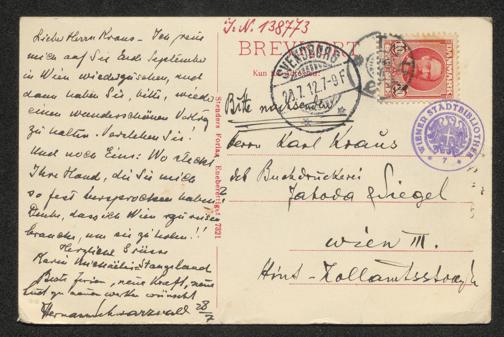 Lieber Herr Kraus – Ich freue
mich auf Sie Ende September
in Wien wiederzusehen, und
dann haben Sie, bitte, wieder
einen wunderschönen Vortrag
zu halten. Verstehen Sie!
Und noch Eins: Wo steckt
Ihre Hand, die Sie mir
so fest versprochen haben?
Denke, dass ich Wien zu
brauche, um sie zu holen!!
Herzliche Grüsse
Karin Michaëlis Stangeland
Beste Ferien, neue Kraft, neue
zu neuen Werken wünscht
Hermann Schwarzwald 28/7
I.N. 138773
BREVKORT
Kun til Adressen.
SVENDBORG
28.7.12.7-9F
DANMARK
WIENER STADTBIBLIOTHEK
* 7 *
Stenders Forlag Eneberettiget 7821
Bitte nachsenden!
Herrn Karl Kraus
des Buchdruckerei
Jahoda & Siegel
Wien III.
Hint. Zollamtsstraße